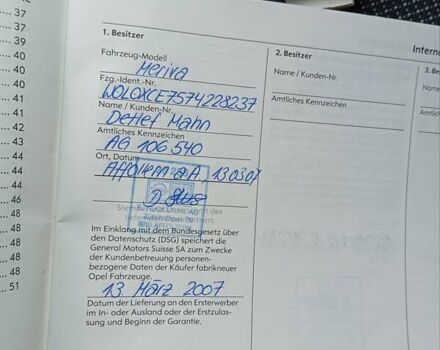 ... 37
... 37
... 39
... 40
... 40
... 40
... 41
... 41
... 42
... 43
... 44
... 44
... 44
... 46
... 48
... 48
... 48
... 48
... 51
1. Besitzer
Fahrzeug-Modell
Meriva
Fzg.-Ident.-Nr.
W0L0XCE7574228237
Name / Kunden-Nr.
Detlef Mahn
Amtliches Kennzeichen
AG 106 540
Ort, Datum
Affoltern a.A, 13.03.07
Im Einklang mit dem Bundesgesetz über
den Datenschutz (DSG) speichert die
General Motors Suisse SA zum Zwecke
der Kundenbetreuung personen-
bezogene Daten der Käufer fabrikneuer
Opel Fahrzeuge.
13. März 2007
Datum der Lieferung an den Ersterwerber
im In- oder Ausland oder der Erstzulas-
sung und Beginn der Garantie.
2. Besitzer
Name / Kunden-Nr.
Amtliches Kennzeichen
Interne
3. Be
Name /
Amtlich